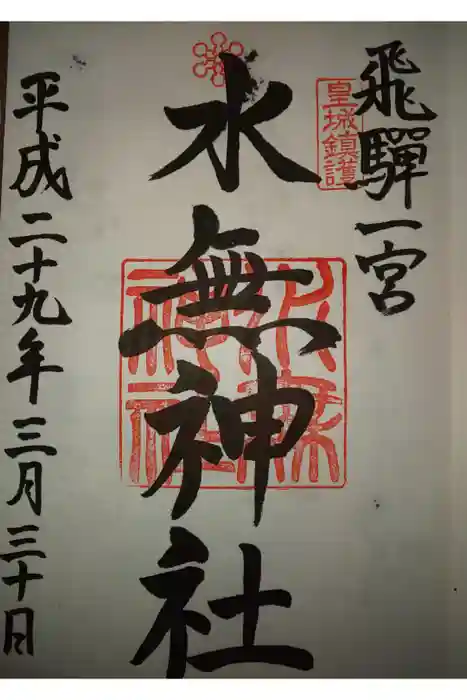 飛騨一宮
皇城鎮護
水無神社
水無神社
平成二十九年三月三十日